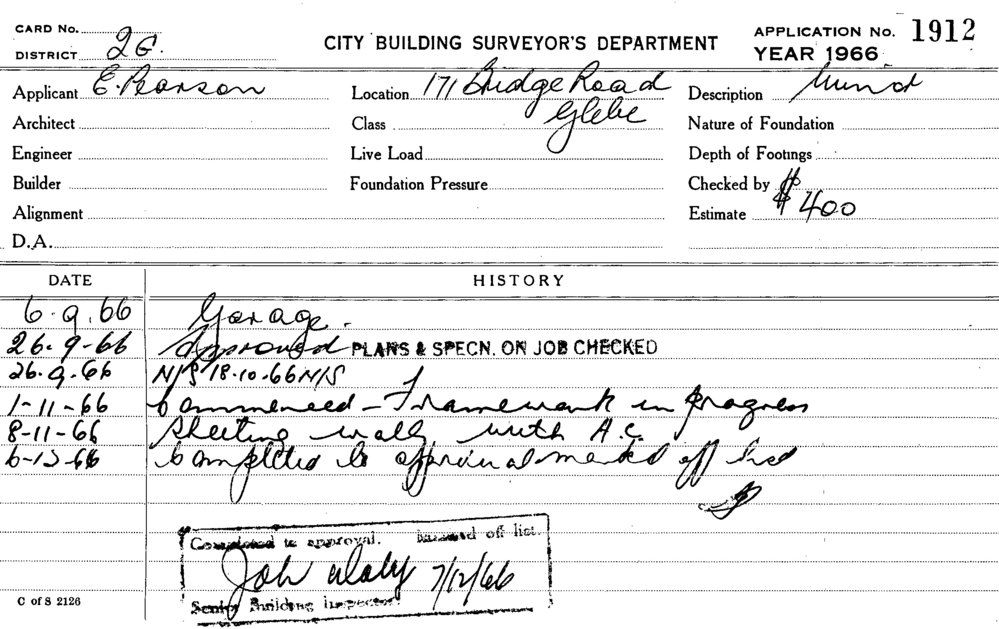 CARD No.
DISTRICT 2G.
CITY BUILDING SURVEYOR'S DEPARTMENT
APPLICATION No. 1912
YEAR 1966
Applicant E. Pearson
Location 171 Bridge Road
Glebe
Description
Architect
Class
Nature of Foundation
Engineer
Live Load
Depth of Footings
Builder
Foundation Pressure
Checked by
Alignment
Estimate $400
D.A.
DATE HISTORY
6.9.66 Garage.
26.9-66 Approved PLANS & SPECN. ON JOB CHECKED
26.9.66 N/S 18.10.66 N/S
1-11-66 Commenced - Framework in progress
8-11-66 Sheeting walls with A.C.
6-12-66 Completed to approval marked off list
Completed to approval. Marked off list.
7/12/66
Senior Building Inspector
C of S 2126